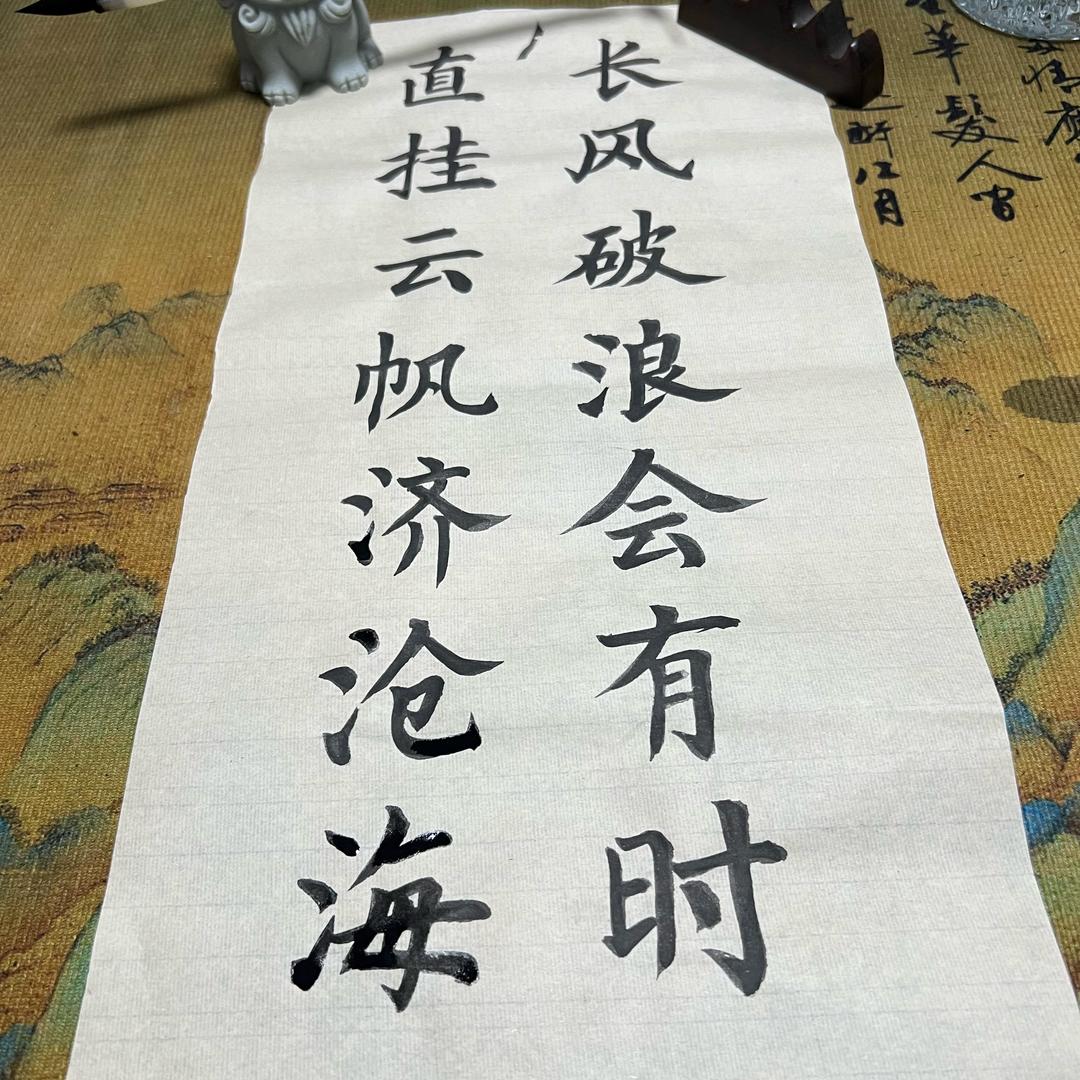 长风破浪会有时
直挂云帆济沧海
华髮人
江月